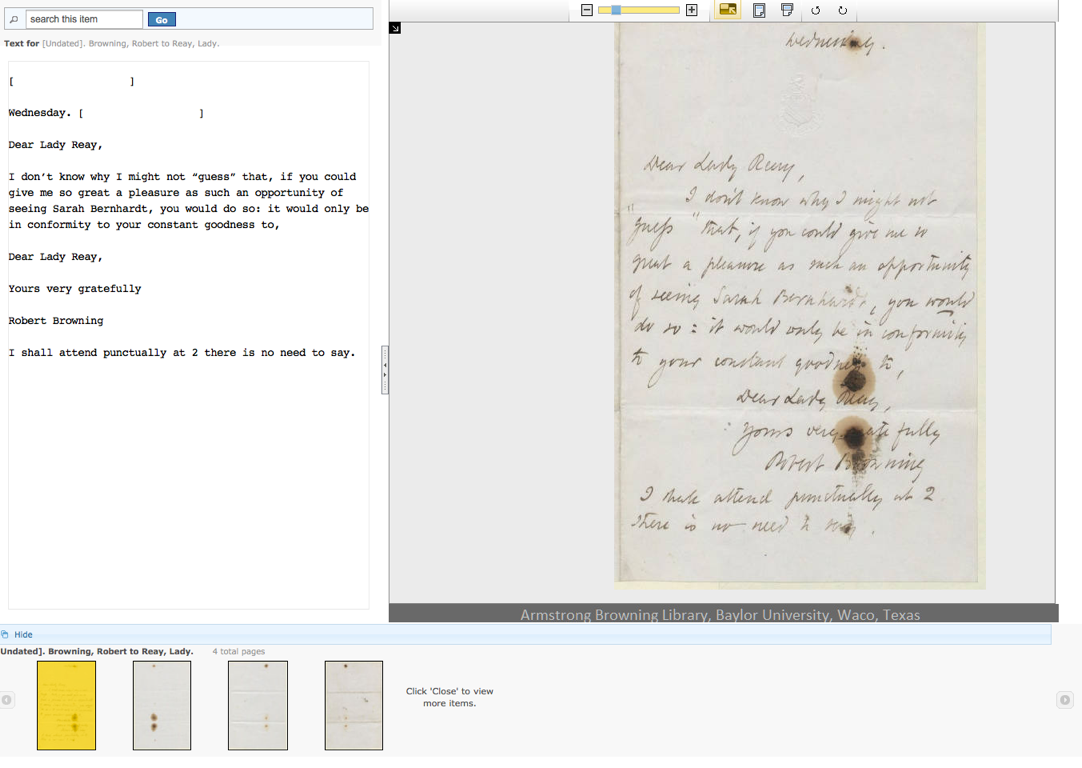 search this item
Go
Text for [Undated]. Browning, Robert to Reay, Lady.
[ ]
Wednesday. [ ]
Dear Lady Reay,
I don’t know why I might not “guess” that, if you could
give me so great a pleasure as such an opportunity of
seeing Sarah Bernhardt, you would do so: it would only be
in conformity to your constant goodness to,
Dear Lady Reay,
Yours very gratefully
Robert Browning
I shall attend punctually at 2 there is no need to say.
Wednesday.
Dear Lady Reay,
I don't know why I might not
"guess" that, if you could give me so
great a pleasure as such an opportunity
of seeing Sarah Bernhardt, you would
do so: it would only be in conformity
to your constant goodness to,
Dear Lady Reay,
Yours very gratefully
Robert Browning
I shall attend punctually at 2
there is no need to say.
Armstrong Browning Library, Baylor University, Waco, Texas
Hide
Undated]. Browning, Robert to Reay, Lady.
4 total pages
Click 'Close' to view
more items.